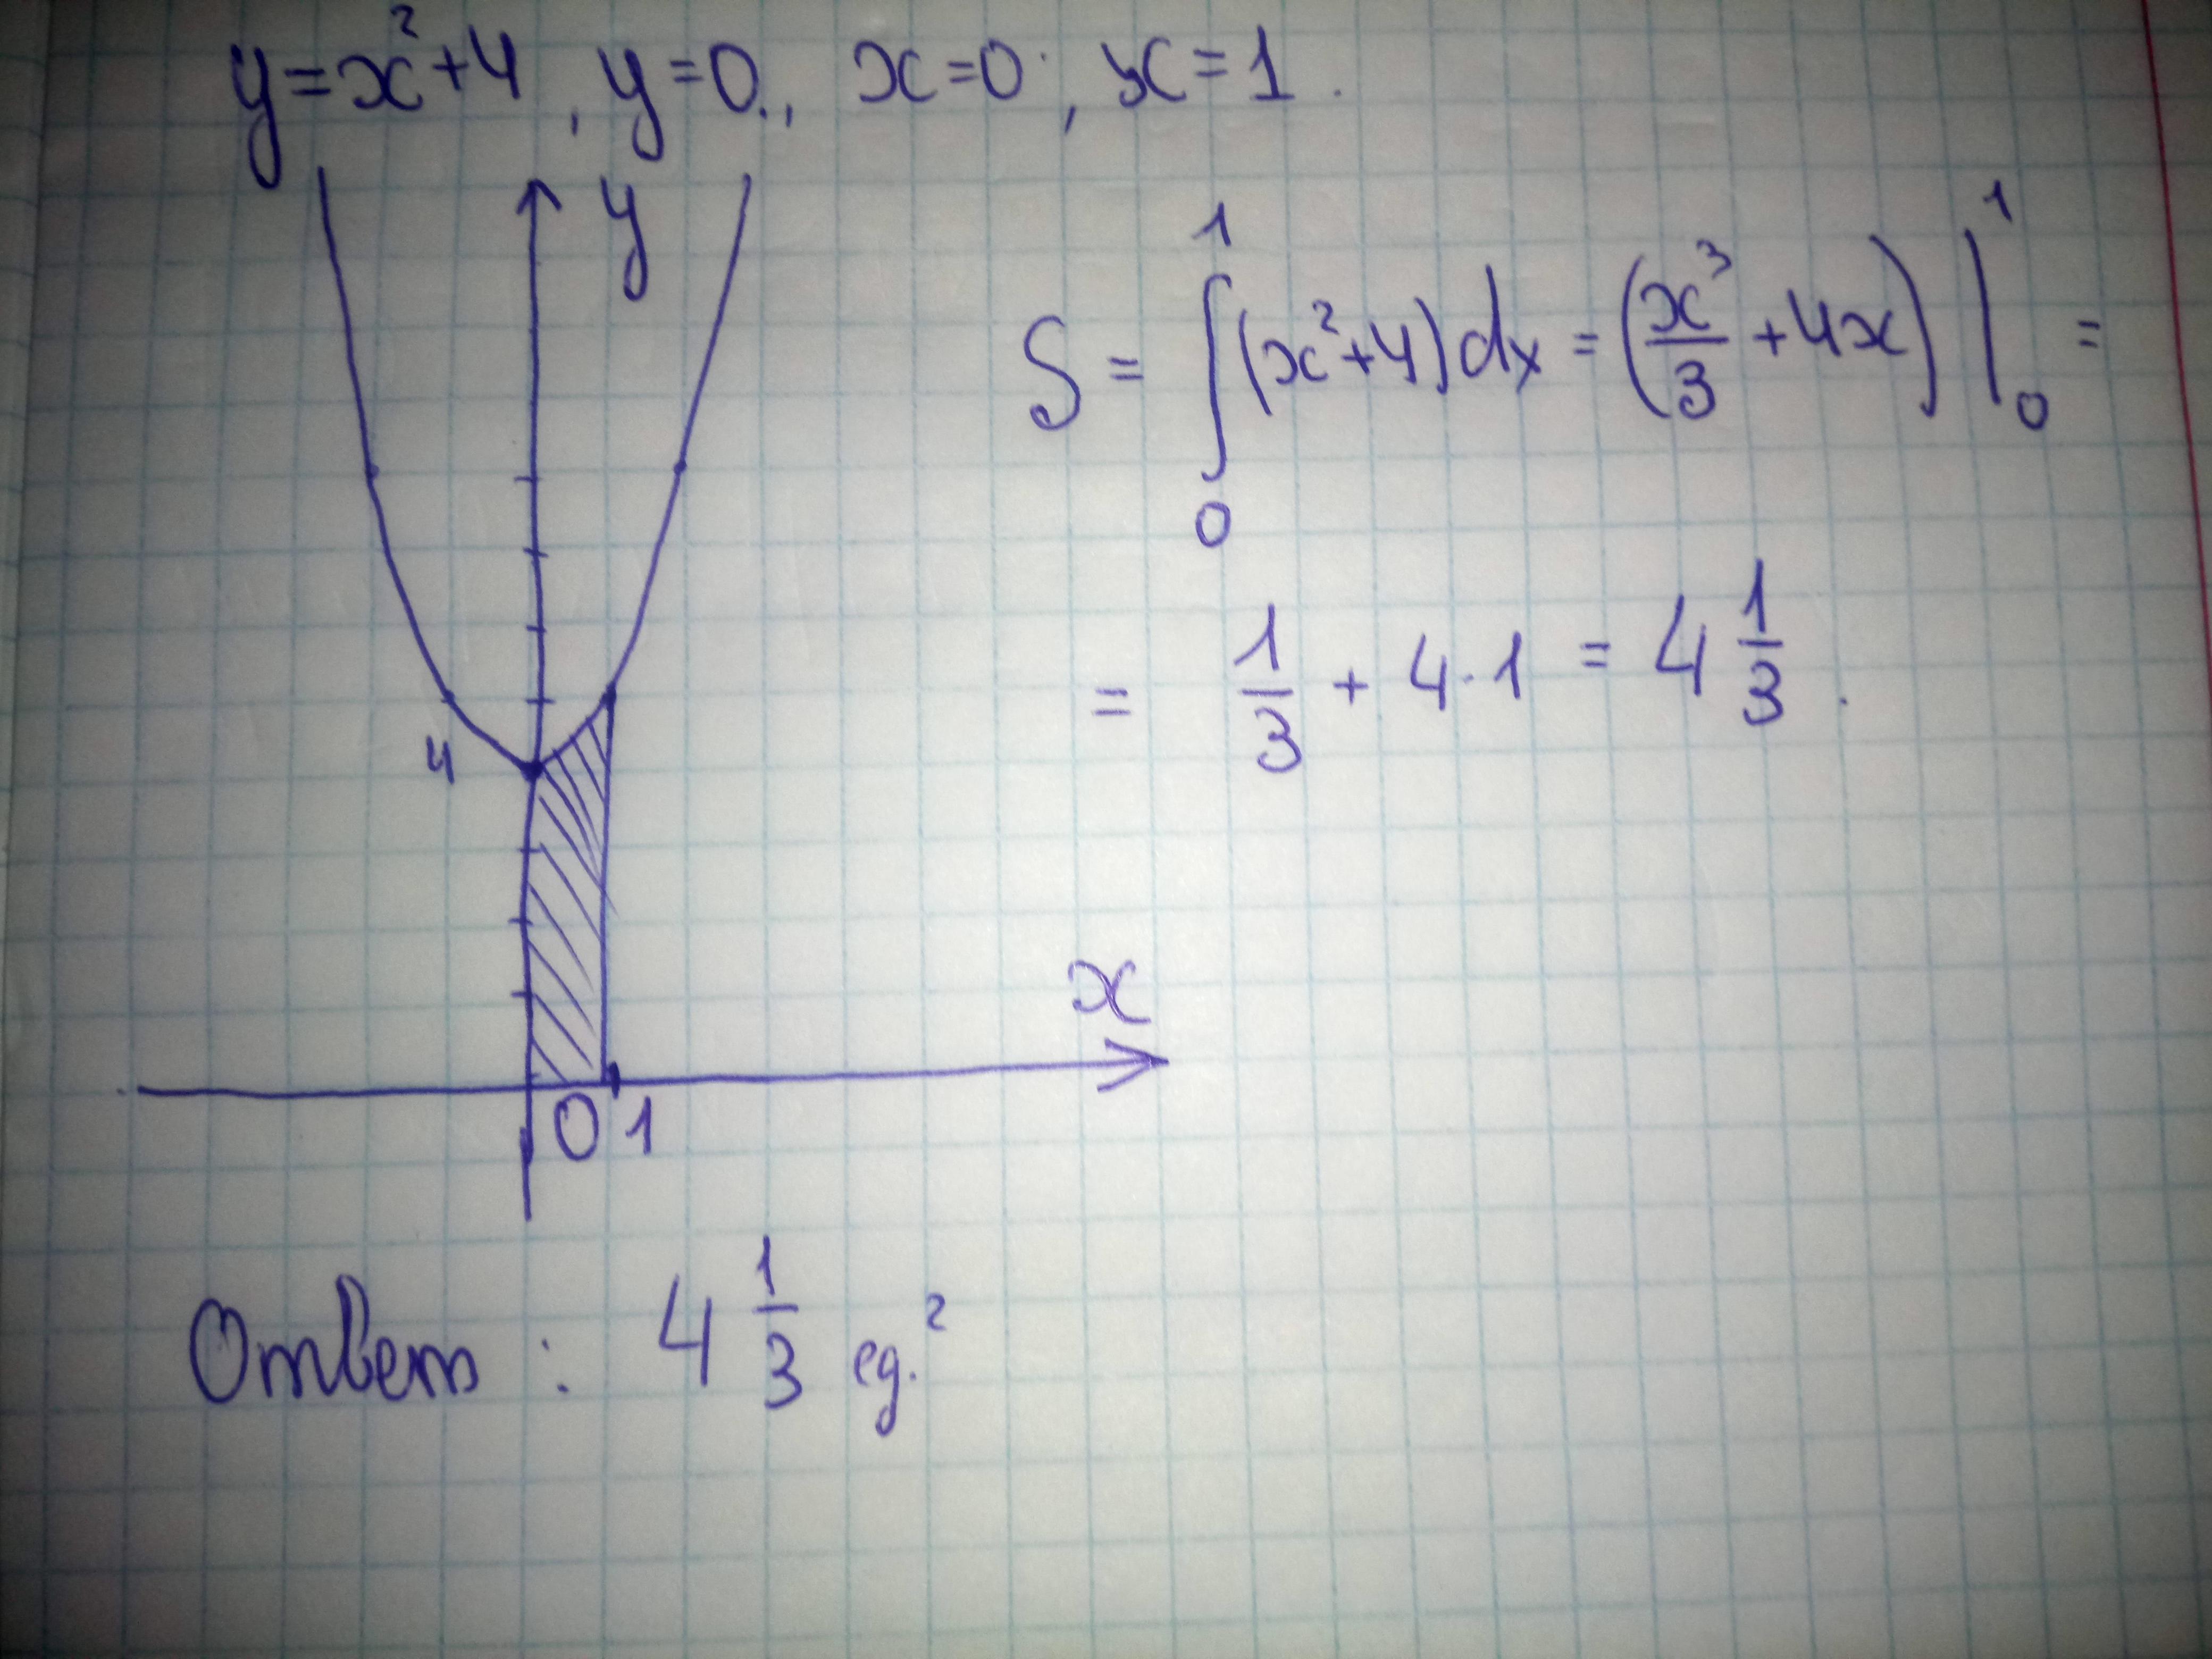 y=x²+4, y=0., x=0, x=1.
y
S = ∫₀¹ (x²+4)dx = (x³/3 + 4x) |₀¹ =
= 1/3 + 4·1 = 4 1/3.
4
x
0 1
Ответ: 4 1/3 ед.²